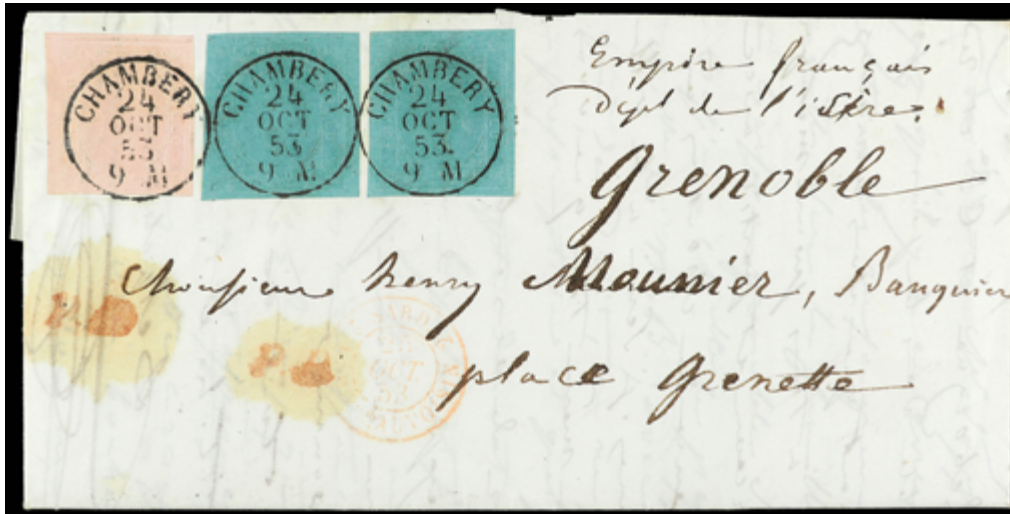 CHAMBERY
24
OCT
53
9 M
CHAMBERY
24
OCT
53
9 M
CHAMBERY
24
OCT
53.
9 M
Empire français
Dépt de l'isère.
Grenoble
Monsieur henry Meunier, Banquier
place Grenette
P.D.
P.D.
SARD.
OCT
53